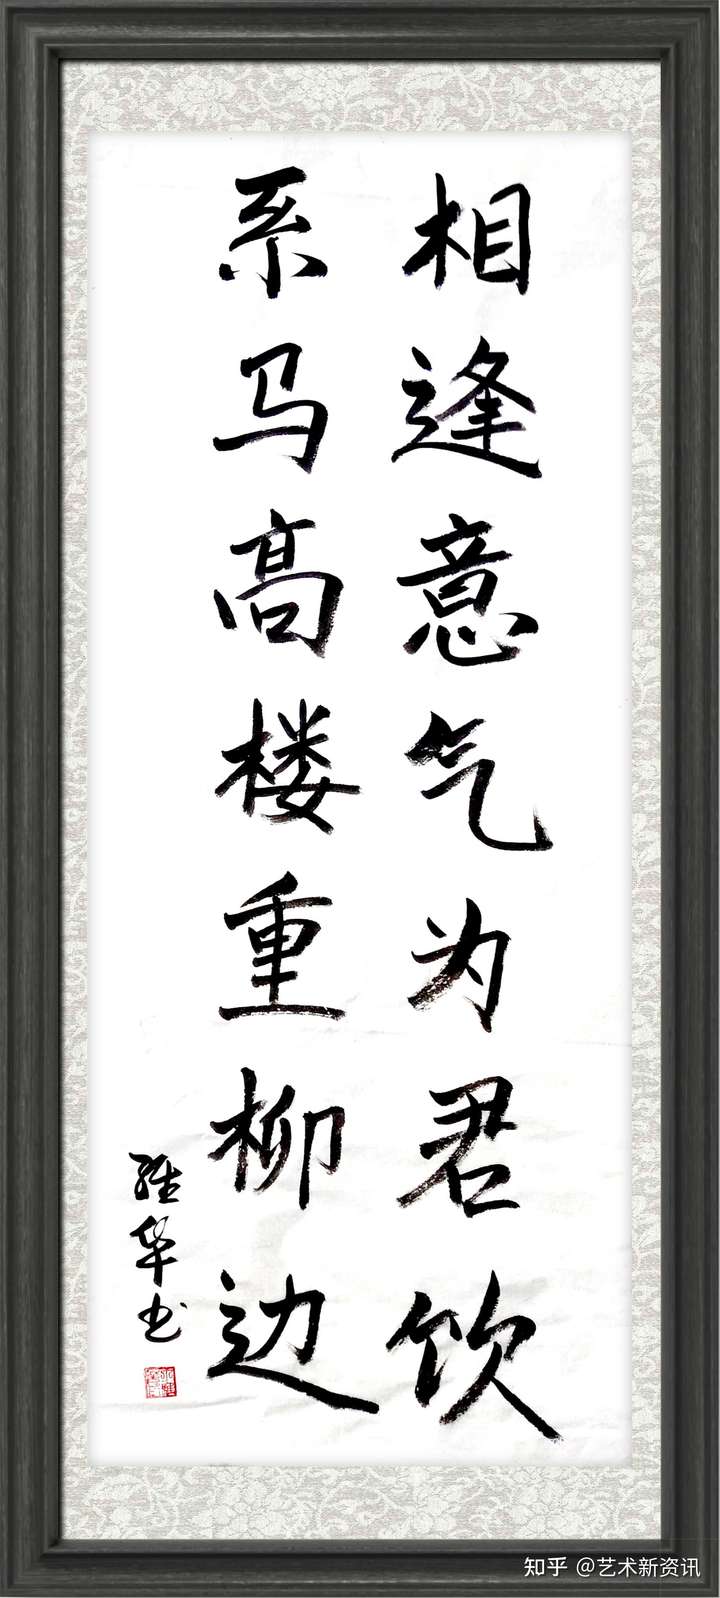 相逢意气为君饮
系马高楼重柳边
维华书
知乎 @艺术新资讯